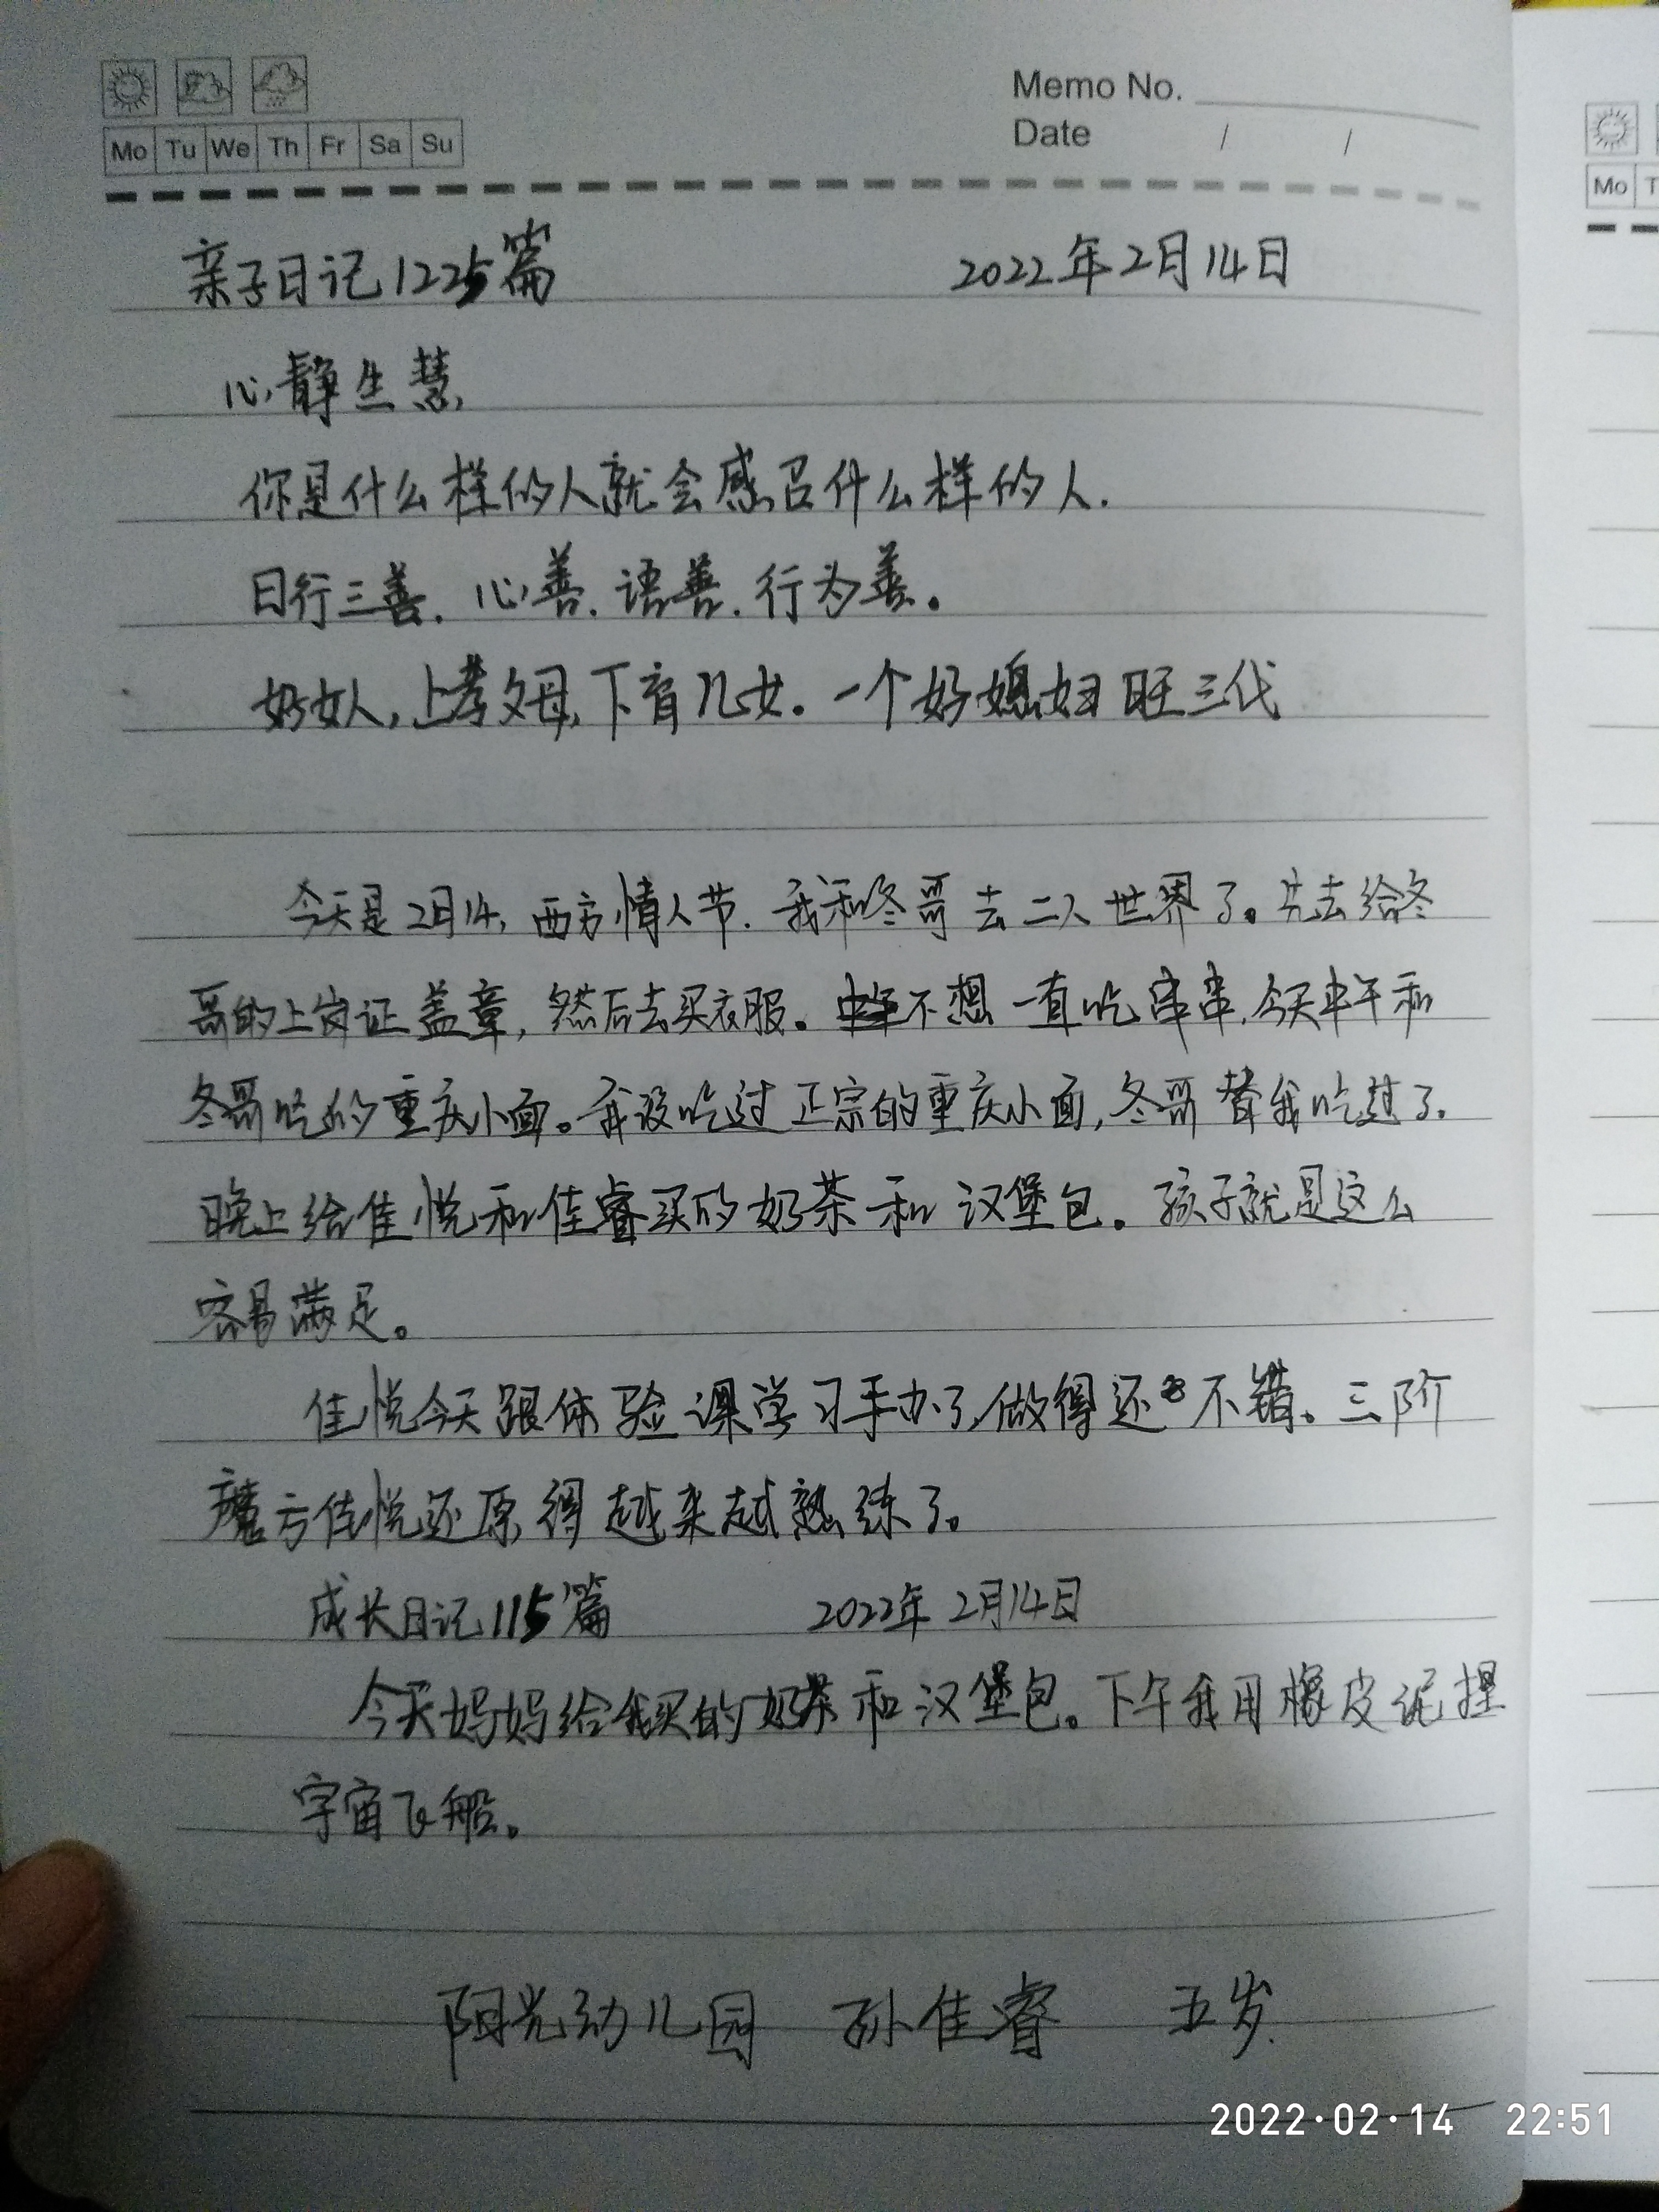 Memo No.
Mo Tu We Th Fr Sa Su
Date / /
亲子日记1225篇 2022年2月14日
心静生慧
你是什么样的人就会感召什么样的人.
日行三善. 心善. 语善. 行为善。
好女人,上孝父母,下育儿女。一个好媳妇旺三代
今天是2月14, 西方情人节. 我和冬哥去二人世界了。先去给冬
哥的上岗证盖章, 然后去买衣服。不想一直吃串串,今天中午和
冬哥吃的重庆小面。我没吃过正宗的重庆小面,冬哥替我吃过了.
晚上给佳悦和佳睿买的奶茶和汉堡包。孩子就是这么
容易满足。
佳悦今天跟体验课学习手办了,做得还不错。三阶
魔方佳悦还原得越来越熟练了。
成长日记115篇 2022年2月14日
今天妈妈给我买的奶茶和汉堡包。下午我用橡皮泥捏
宇宙飞船。
阳光幼儿园 孙佳睿 五岁.
2022·02·14 22:51
Mo T